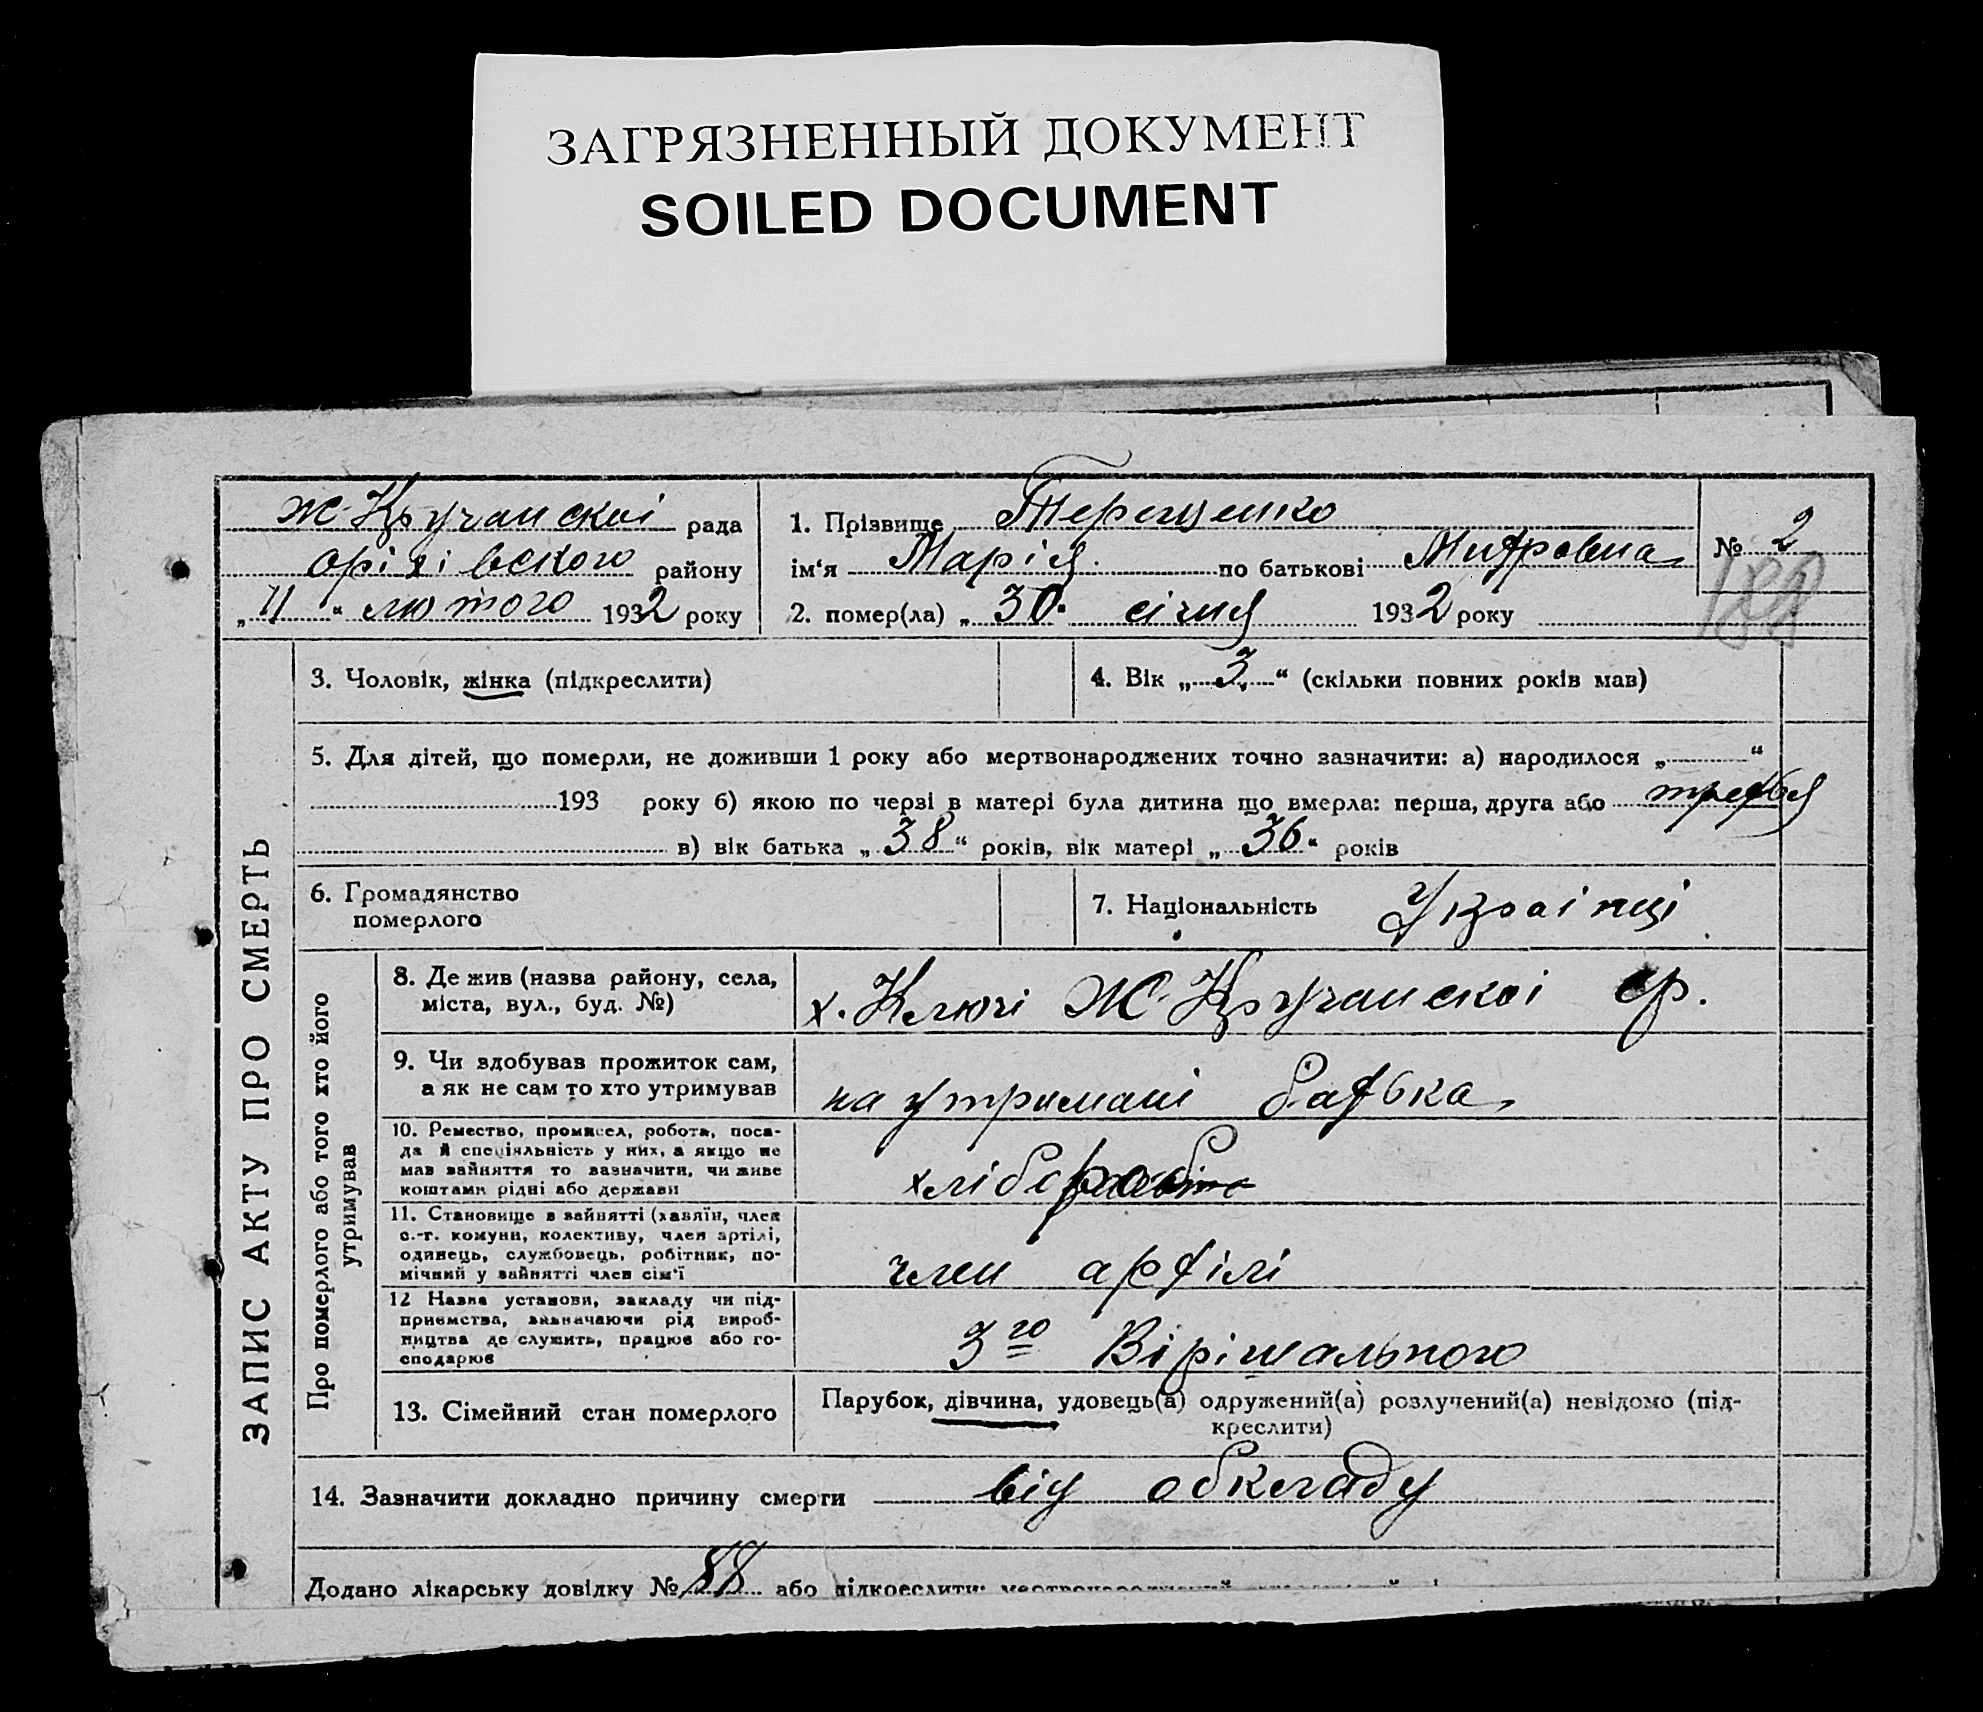 ЗАГРЯЗНЕННЫЙ ДОКУМЕНТ
SOILED DOCUMENT
Ж-Кручанскоі рада
Оріхівского району
„ 11 “ лютого 1932 року
1. Прізвище Терещенко
ім‘я Марія по батькові
2. помер(ла) „ 30 “ січня 1932 року
№ 2
ЗАПИС АКТУ ПРО СМЕРТЬ
3. Чоловік, жінка (підкреслити)
4. Вік „ 3 “ (скільки повних років мав)
5. Для дітей, що померли, не доживши 1 року або мертвонароджених точно зазначити: а) народилося „ “
193 року б) якою по черзі в матері була дитина що вмерла: перша, друга або третья
в) вік батька „ 38 “ років, вік матері „ 36 “ років
6. Громадянство
померлого
7. Національність Украінці
Про померлого або того хто його
утримував
8. Де жив (назва району, села,
міста, вул., буд. №)
х. Ключі Ж-Кручанскоі ср.
9. Чи здобував прожиток сам,
а як не сам то хто утримував
на утримані батька
10. Ремество, промисел, робота, поса-
да й спеціяльність у них, а якщо не
мав зайняття то зазначити, чи живе
коштами рідні або держави
хлібороб
11. Становище в зайнятті (хазяїн, член
с.-г. комуни, колективу, член артілі,
одинець, службовець, робітник, по-
мічний у зайнятті член сім‘ї
член артілі
12 Назва установи, закладу чи під-
приємства, зазначаючи рід вироб-
ництва де служить, працює або го-
сподарює
3го Вірішального
13. Сімейний стан померлого
Парубок, дівчина, удовець(а) одружений(а) розлучений(а) невідомо (під-
креслити)
14. Зазначити докладно причину смерти від обкладу
Додано лікарську довідку № 88 або підкреслити: